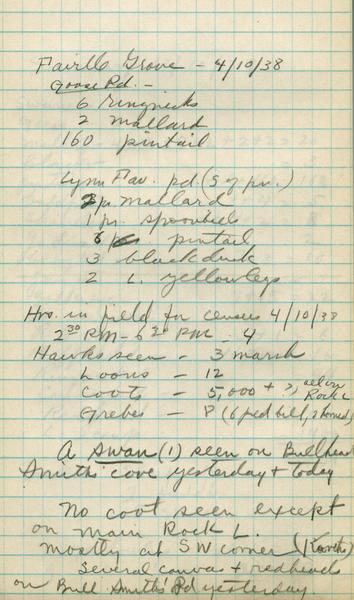 Fairllo Grove - 4/10/38
Goose Pd. -
6 ringnecks
2 mallard
160 pintail
Lynn Flav. pd. (S of pv.)
pr mallard
1 pr. spoonbills
6 pintail
3 black duck
2 L. yellowlegs
Hrs. in field for census 4/10/38
2 30 PM - 6 30 PM - 4
Hawks seen - 3 marsh
Loons - 12
Coots - 5,000 + ?, all on Rock L
Grebes - 8 (6 pied bill, 2 horned)
A Swan (1) seen on Bullhead
Smith's cove yesterday + today
No coot seen except
on main Rock L.
mostly at SW corner
Several canvas + redheads
on Bull Smith's Pd yesterday.